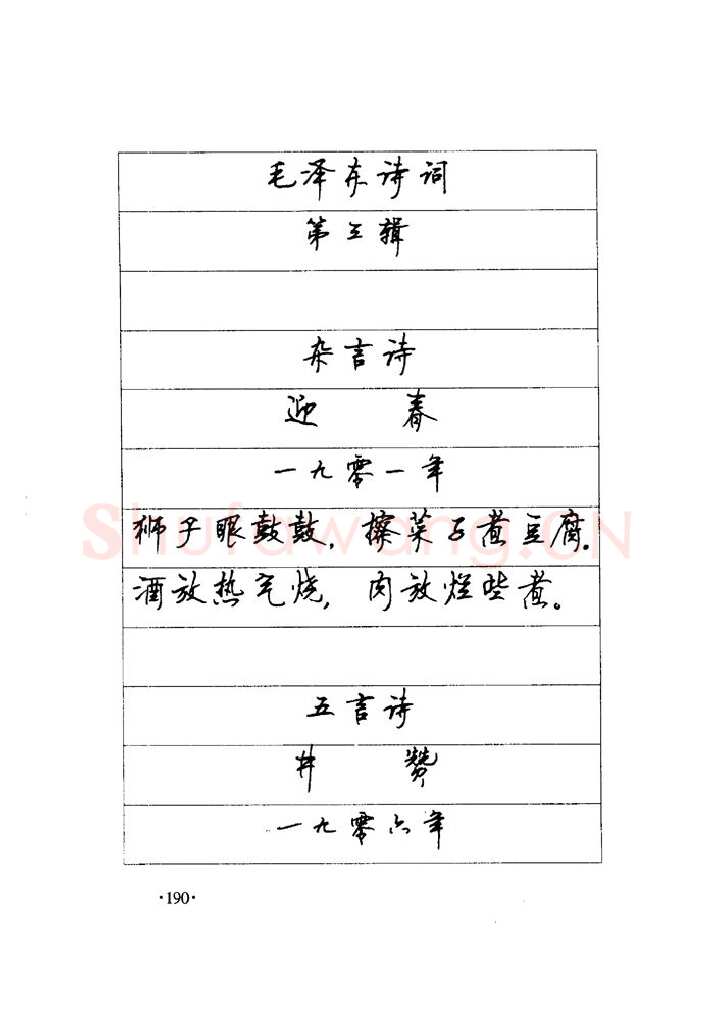 毛泽东诗词
第三辑
杂言诗
迎 春
一九零一年
狮子眼鼓鼓，擦菜子煮豆腐。
酒放热气烧，肉放烂些煮。
五言诗
井 赞
一九零六年
·190·
Shufawang.CN